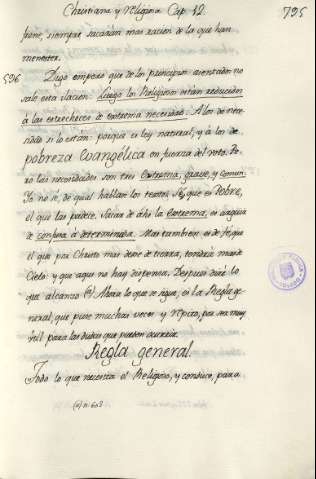 Christiana y Religiosa Cap. 12. 795
frene, siempre sacarán mas racion de la que han
menester.
596 Digo empero que de los principios asentados no
sale esta ilacion: Luego los Religiosos están reducidos
à las estrecheces de extrema necesidad. A los de nece-
sidad sí lo están: porque es ley natural, y à los de
pobreza Evangélica en fuerza del voto. Pe-
ro las necesidades son tres Extrema, grave, y comun.
Yo no sé, de qual hablan los textos. Sé, que es Pobre,
el que las padece. Sacar de ahí la Extrema, es ilacion
de confusa à determinada. Mas tambien es de fe, que
el que por Christo mas dexe de tierra, tendrá mas de
Cielo: y que aqui no hay dispensa. Despues diré lo
que alcanzo (a) Ahora lo que se sigue, es la Regla ge-
neral, que puse muchas veces y repito, por ser muy
útil para las dudas que pueden ocurrir.
Regla general.
Todo lo que necesita el Religioso, y conduce, para
(a) n. 603